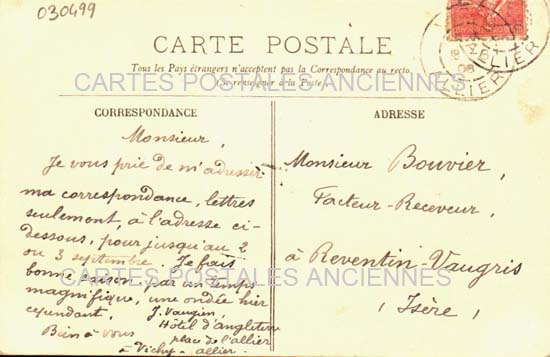 030499
CARTE POSTALE
Tous les Pays étrangers n'acceptent pas la Correspondance au recto
(Se renseigner à la Poste)
CARTES POSTALES ANCIENNES
CORRESPONDANCE
Monsieur,
Je vous prie de m'adresser
ma correspondance, lettres
seulement, à l'adresse ci-
dessous, pour jusqu'au 2
ou 3 septembre. Je fais
bonne saison, par un temps
magnifique, une ondée hier
cependant.
J. Vaugien,
Hôtel d'angleterre
Bien à vous
place de l'allier
à Vichy - allier.
ADRESSE
Monsieur Bouvier,
Facteur-Receveur,
à Reventin-Vaugris
(Isère)
CARTES POSTALES ANCIENNES
ALLIER